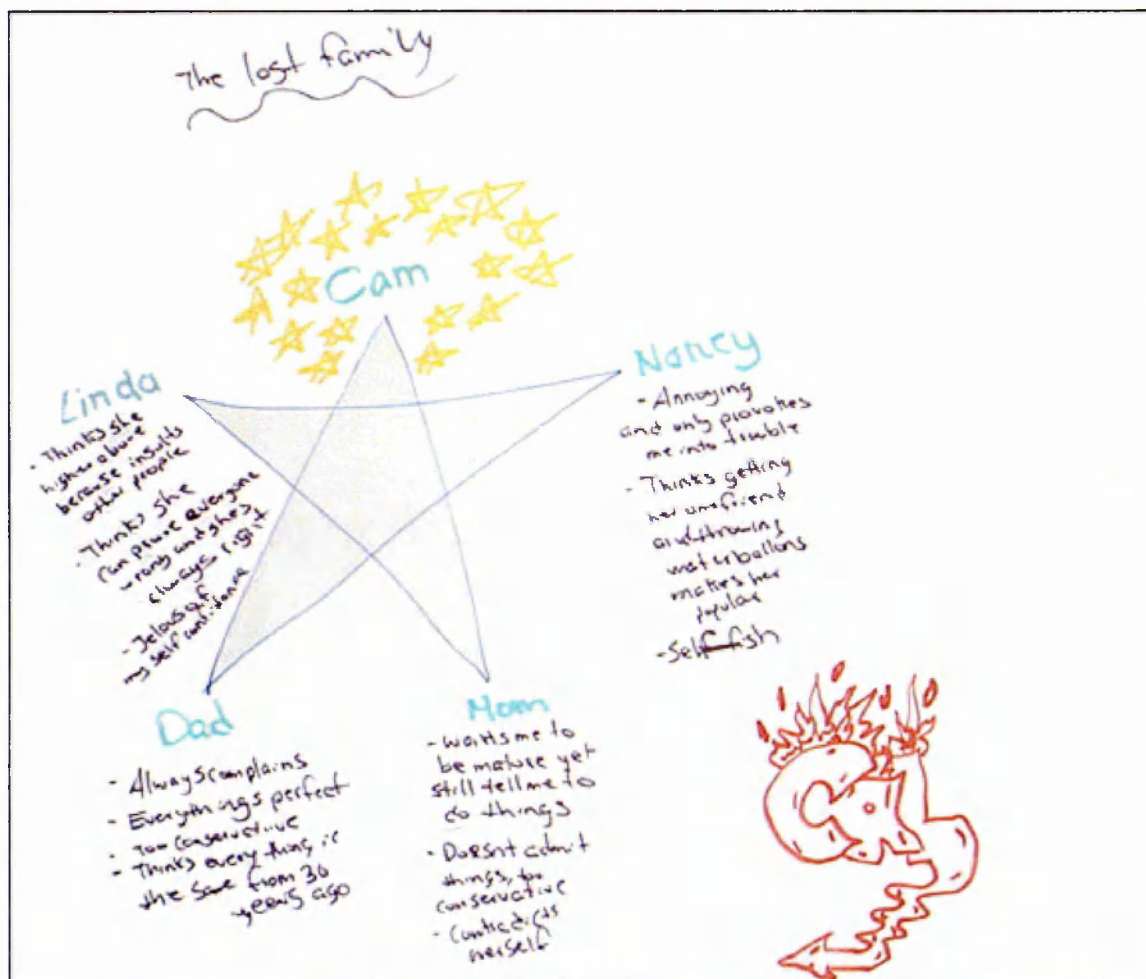 The lost family
Cam
Linda
- Thinks she
higher above
because insults
other people
- Thinks she
can prove everyone
wrong and shes
always right
- Jelous of
my self confidence
Nancy
- Annoying
and only provokes
me into trouble
- Thinks getting
her friend
and throwing
waterballons
makes her
popular
- Self-fish
Dad
- Always complains
- Everythings perfect
- Too conservative
- Thinks every thing is
the same from 30
years ago
Mom
- wants me to
be mature yet
still tell me to
do things
- Doesnt admit
things, too
conservative
- Contradicts
herself